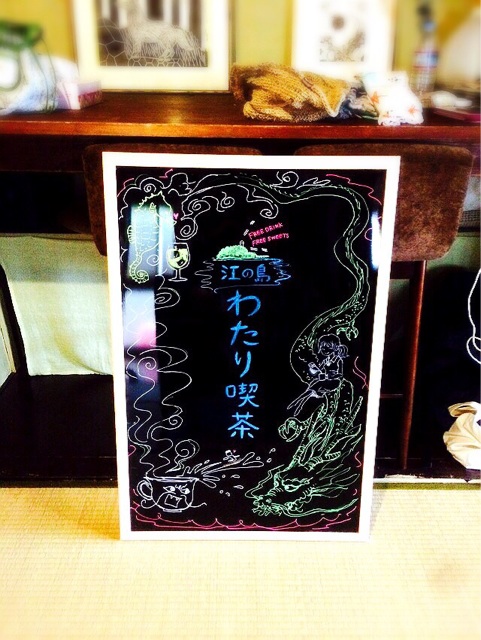 FREE DRINK
FREE SWEETS
江の島
わたり喫茶